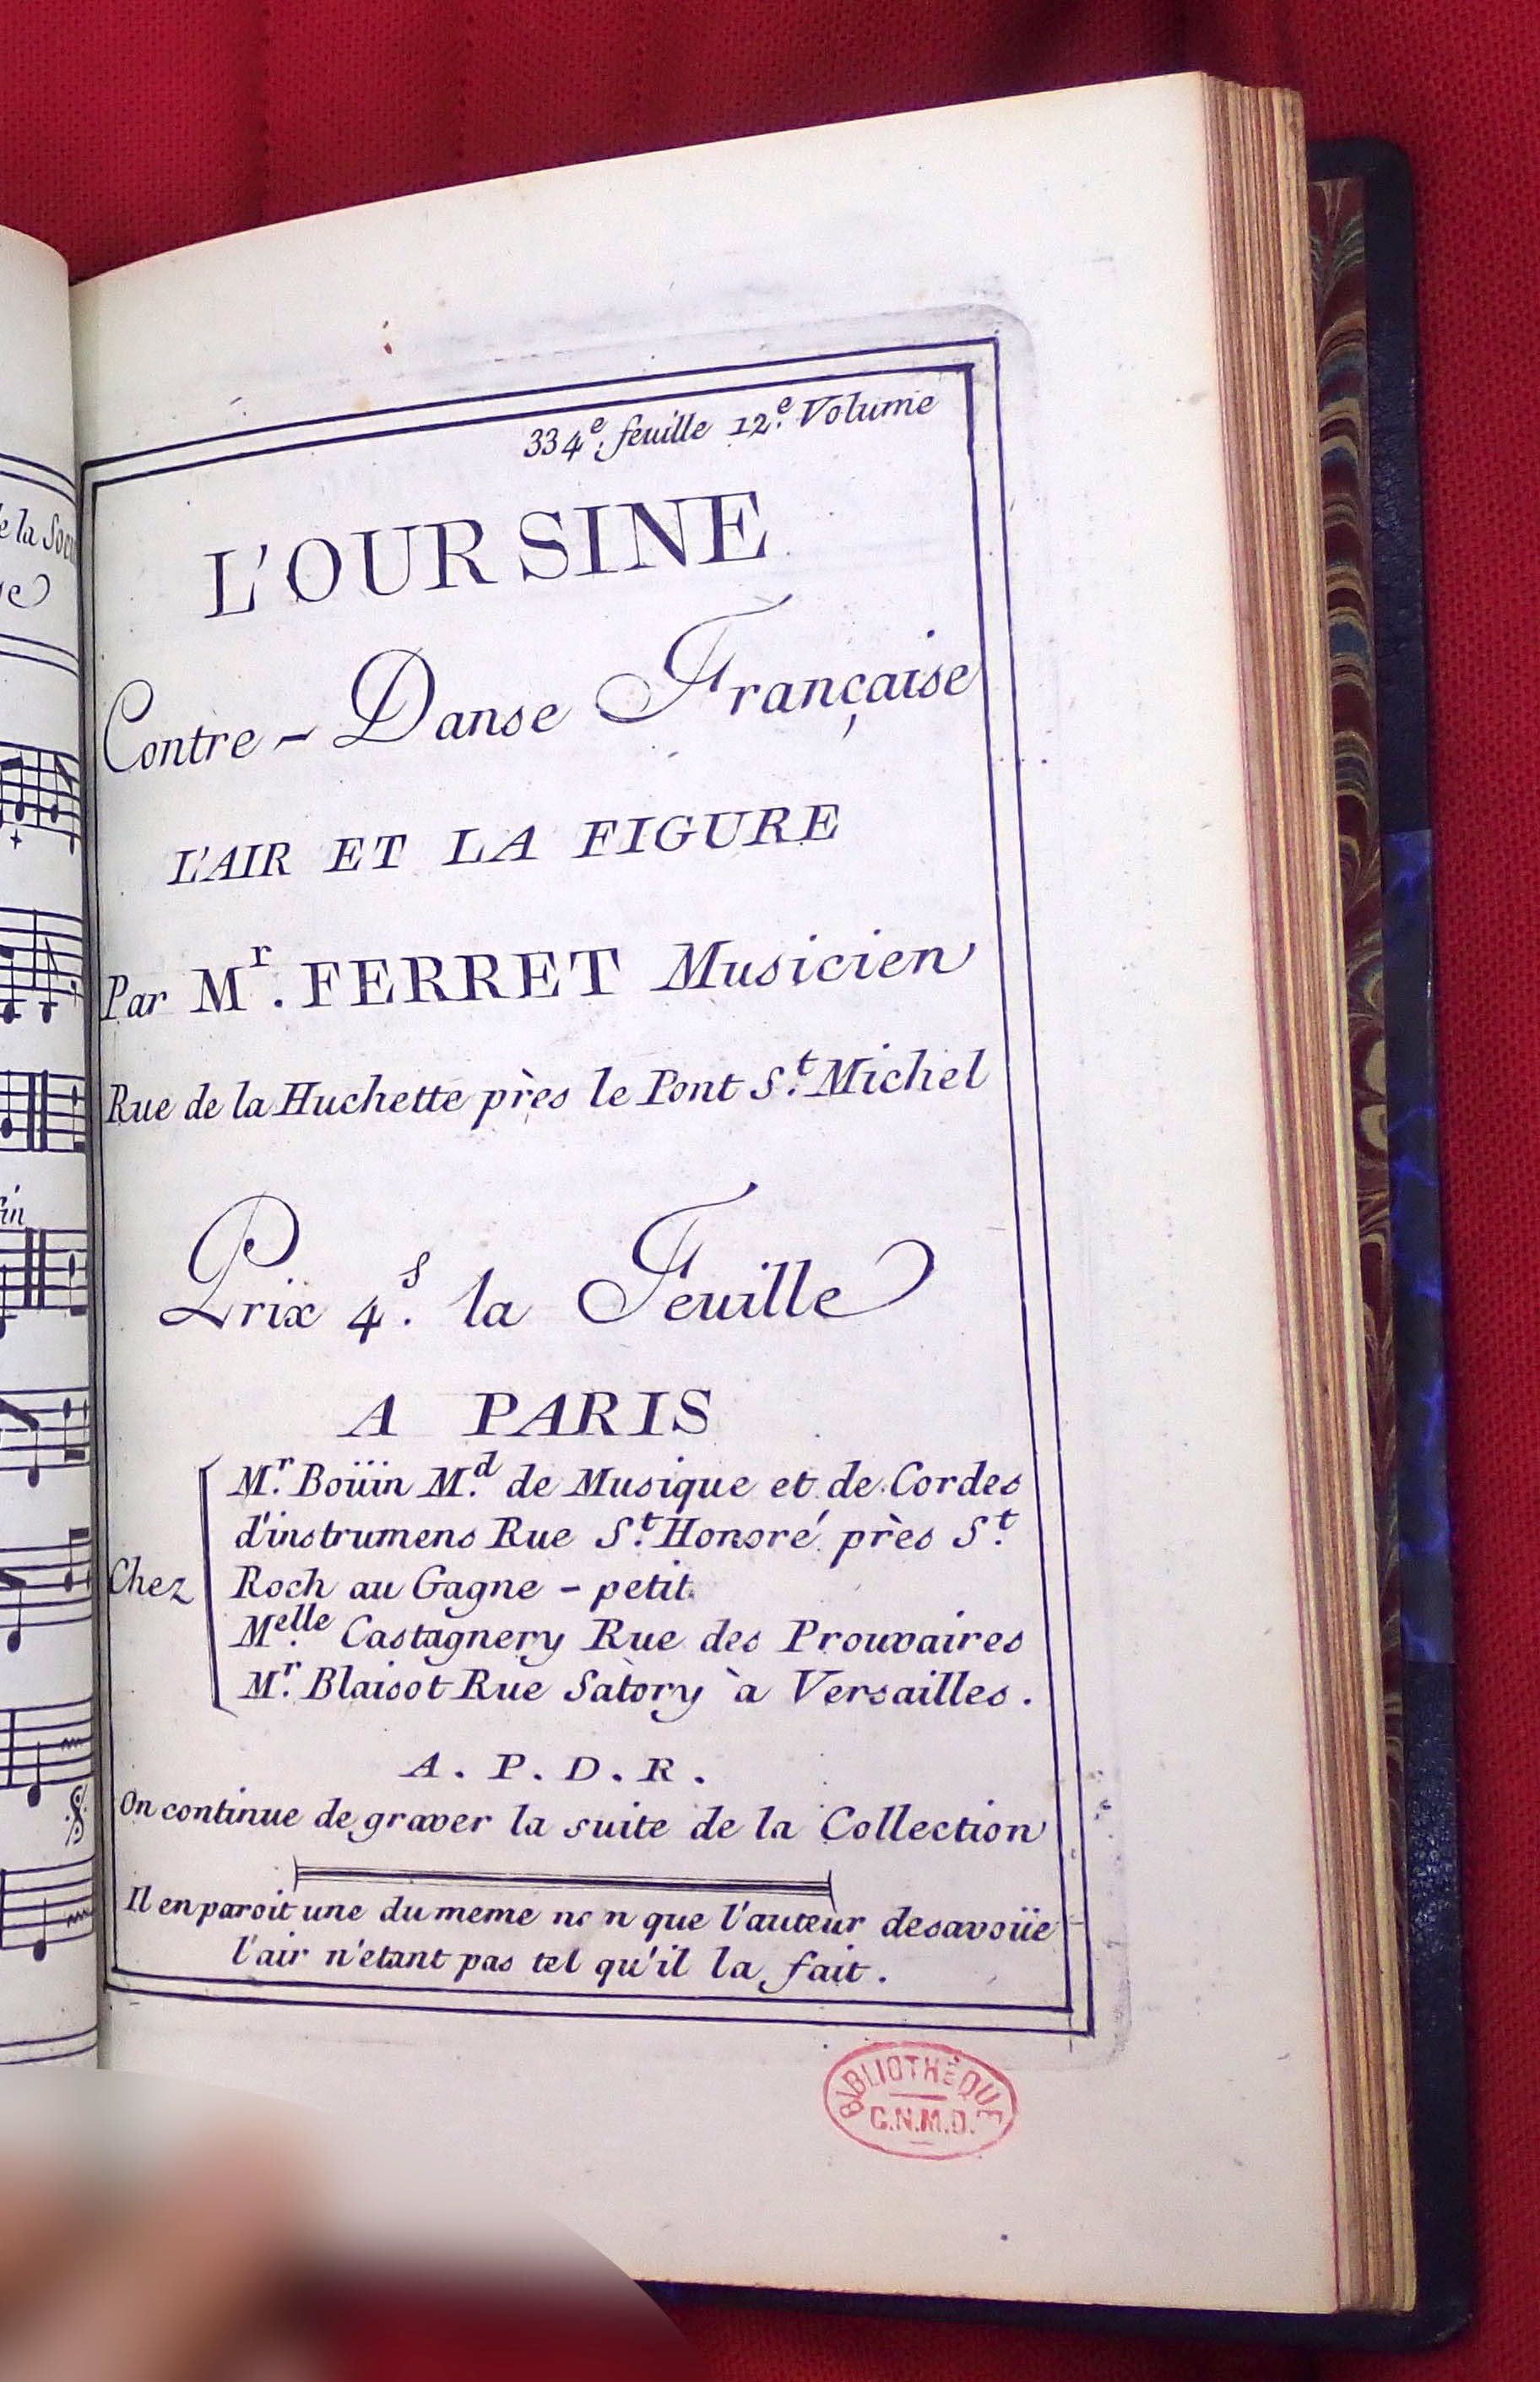 334e. feuille 12e. Volume
L'OURSINE
Contre - Danse Française
L'AIR ET LA FIGURE
Par Mr. FERRET Musicien
Rue de la Huchette près le Pont St. Michel
Prix 4s. la Feuille
A PARIS
Chez
Mr. Boüin Md. de Musique et de Cordes
d'instrumens Rue St. Honoré près St.
Roch au Gagne - petit.
Melle. Castagnery Rue des Prouvaires
Mr. Blaisot Rue Satory à Versailles.
A. P. D. R.
On continue de graver la suite de la Collection
Il en paroit une du meme non que l'auteur desavoüe
l'air n'etant pas tel qu'il la fait.
BIBLIOTHÈQUE
C.N.M.D.
e la
fin